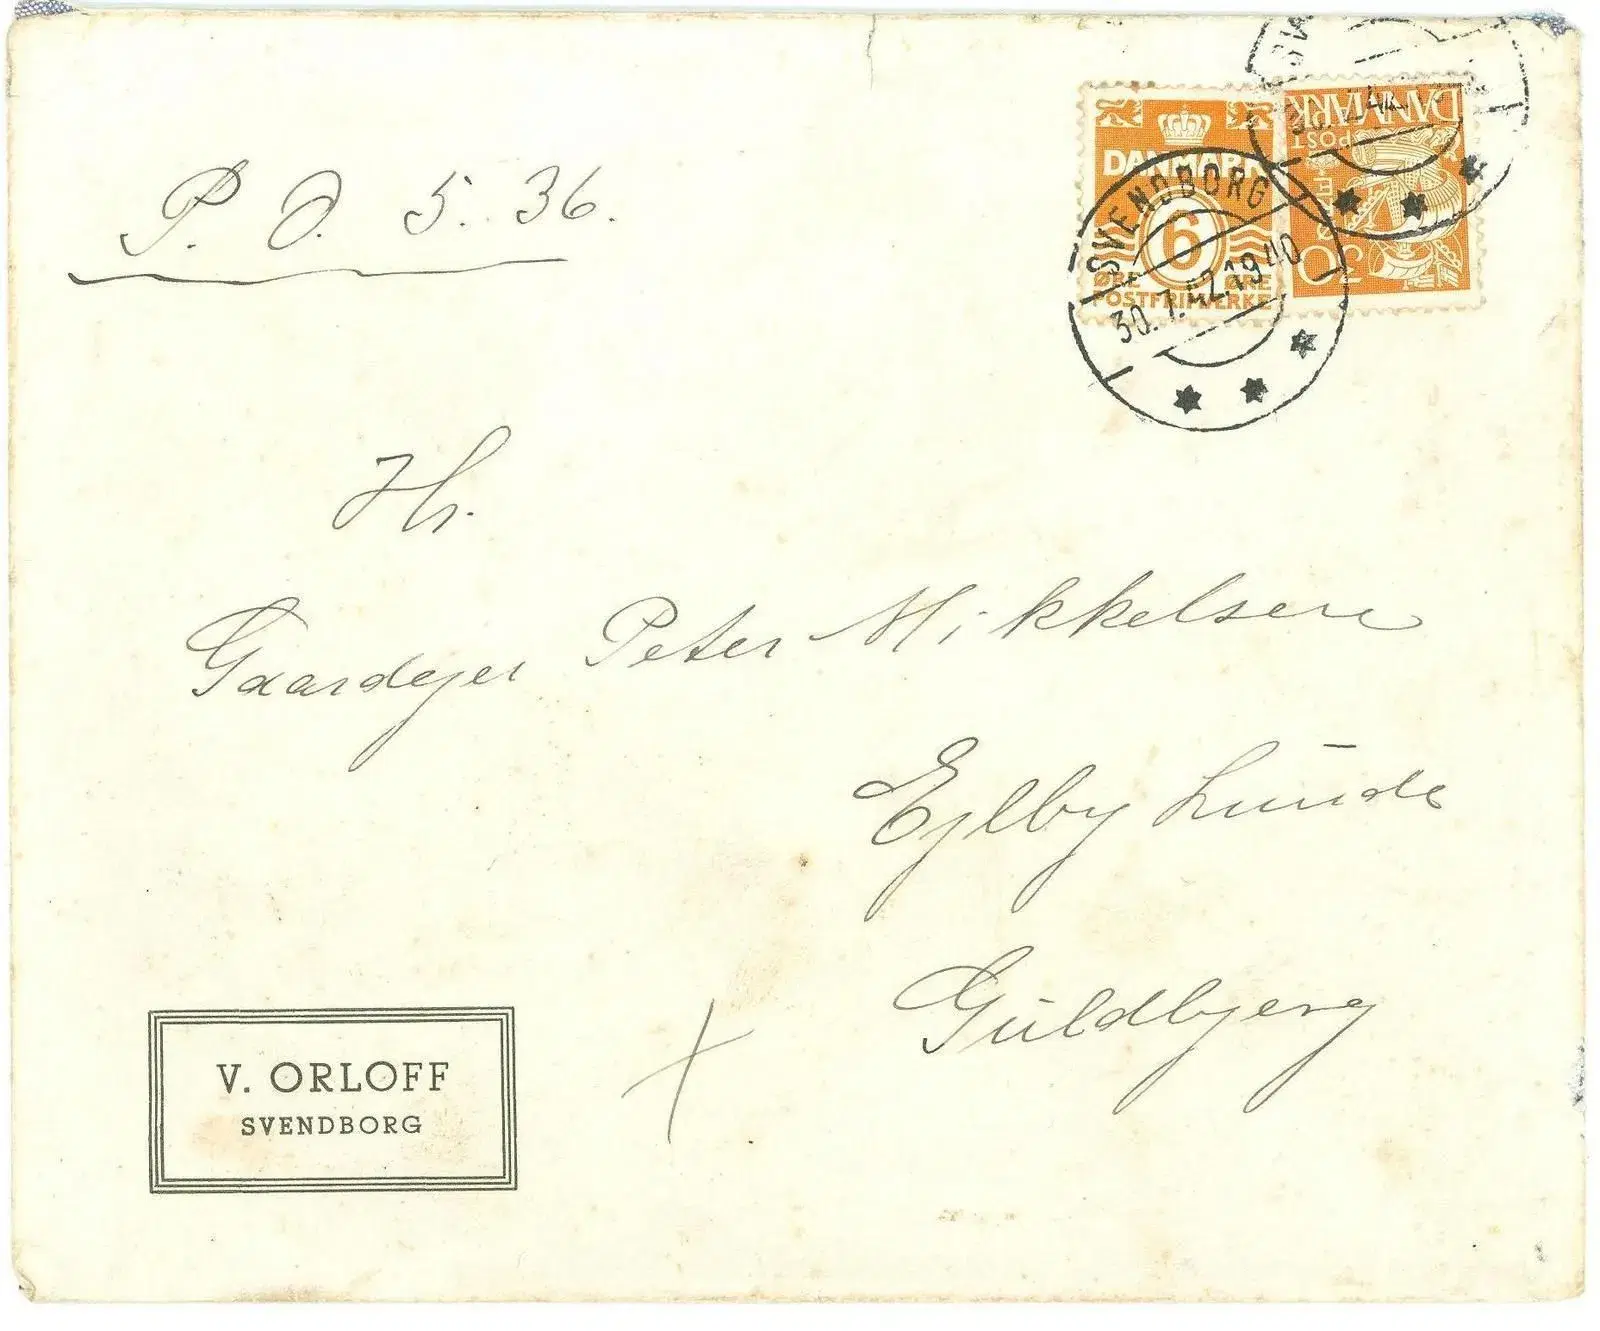 P. O. 5. 36.
DANMARK
6
ØRE ØRE
POSTFRIMÆRKE
DANMARK
POST
30
ØRE
SVENDBORG
30.7.42.19-40
Hr.
Gaardejer Peter Mikkelsen
Ejlby Lunde
Guldbjerg
V. ORLOFF
SVENDBORG